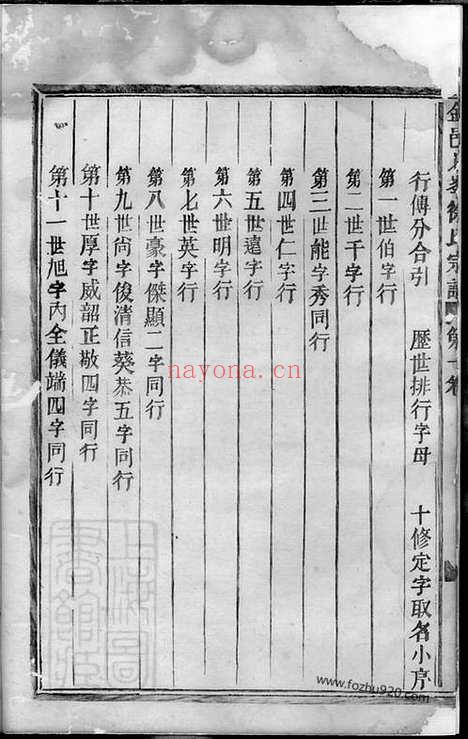 金邑
徐氏宗譜
第一卷
行傳分合引 歷世排行字母 十修定字取名小序
第一世伯字行
第二世千字行
第三世能字秀同行
第四世仁字行
第五世遠字行
第六世明字行
第七世英字行
第八世豪字傑顯二字同行
第九世尙字俊清信葵恭五字同行
第十世厚字威韶正敬四字同行
第十一世旭字丙全儀端四字同行
nayona.cn
www.fozhu920.com